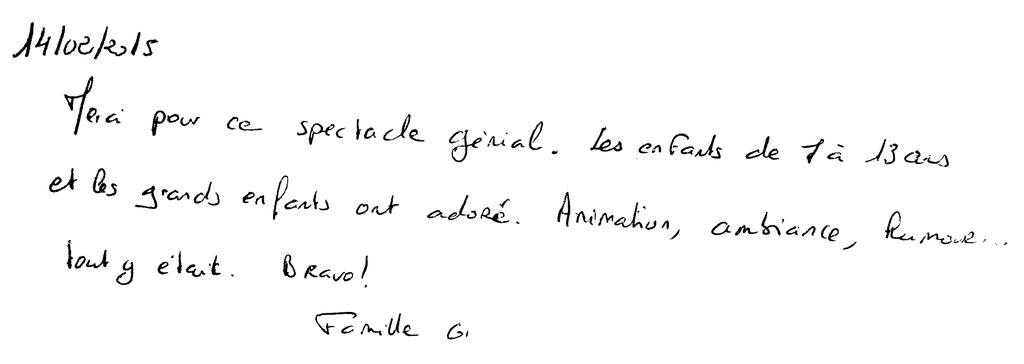 14/02/2015
Merci pour ce spectacle génial. Les enfants de 7 à 13 ans
et les grands enfants ont adoré. Animation, ambiance, humour...
tout y était. Bravo!
Famille G.